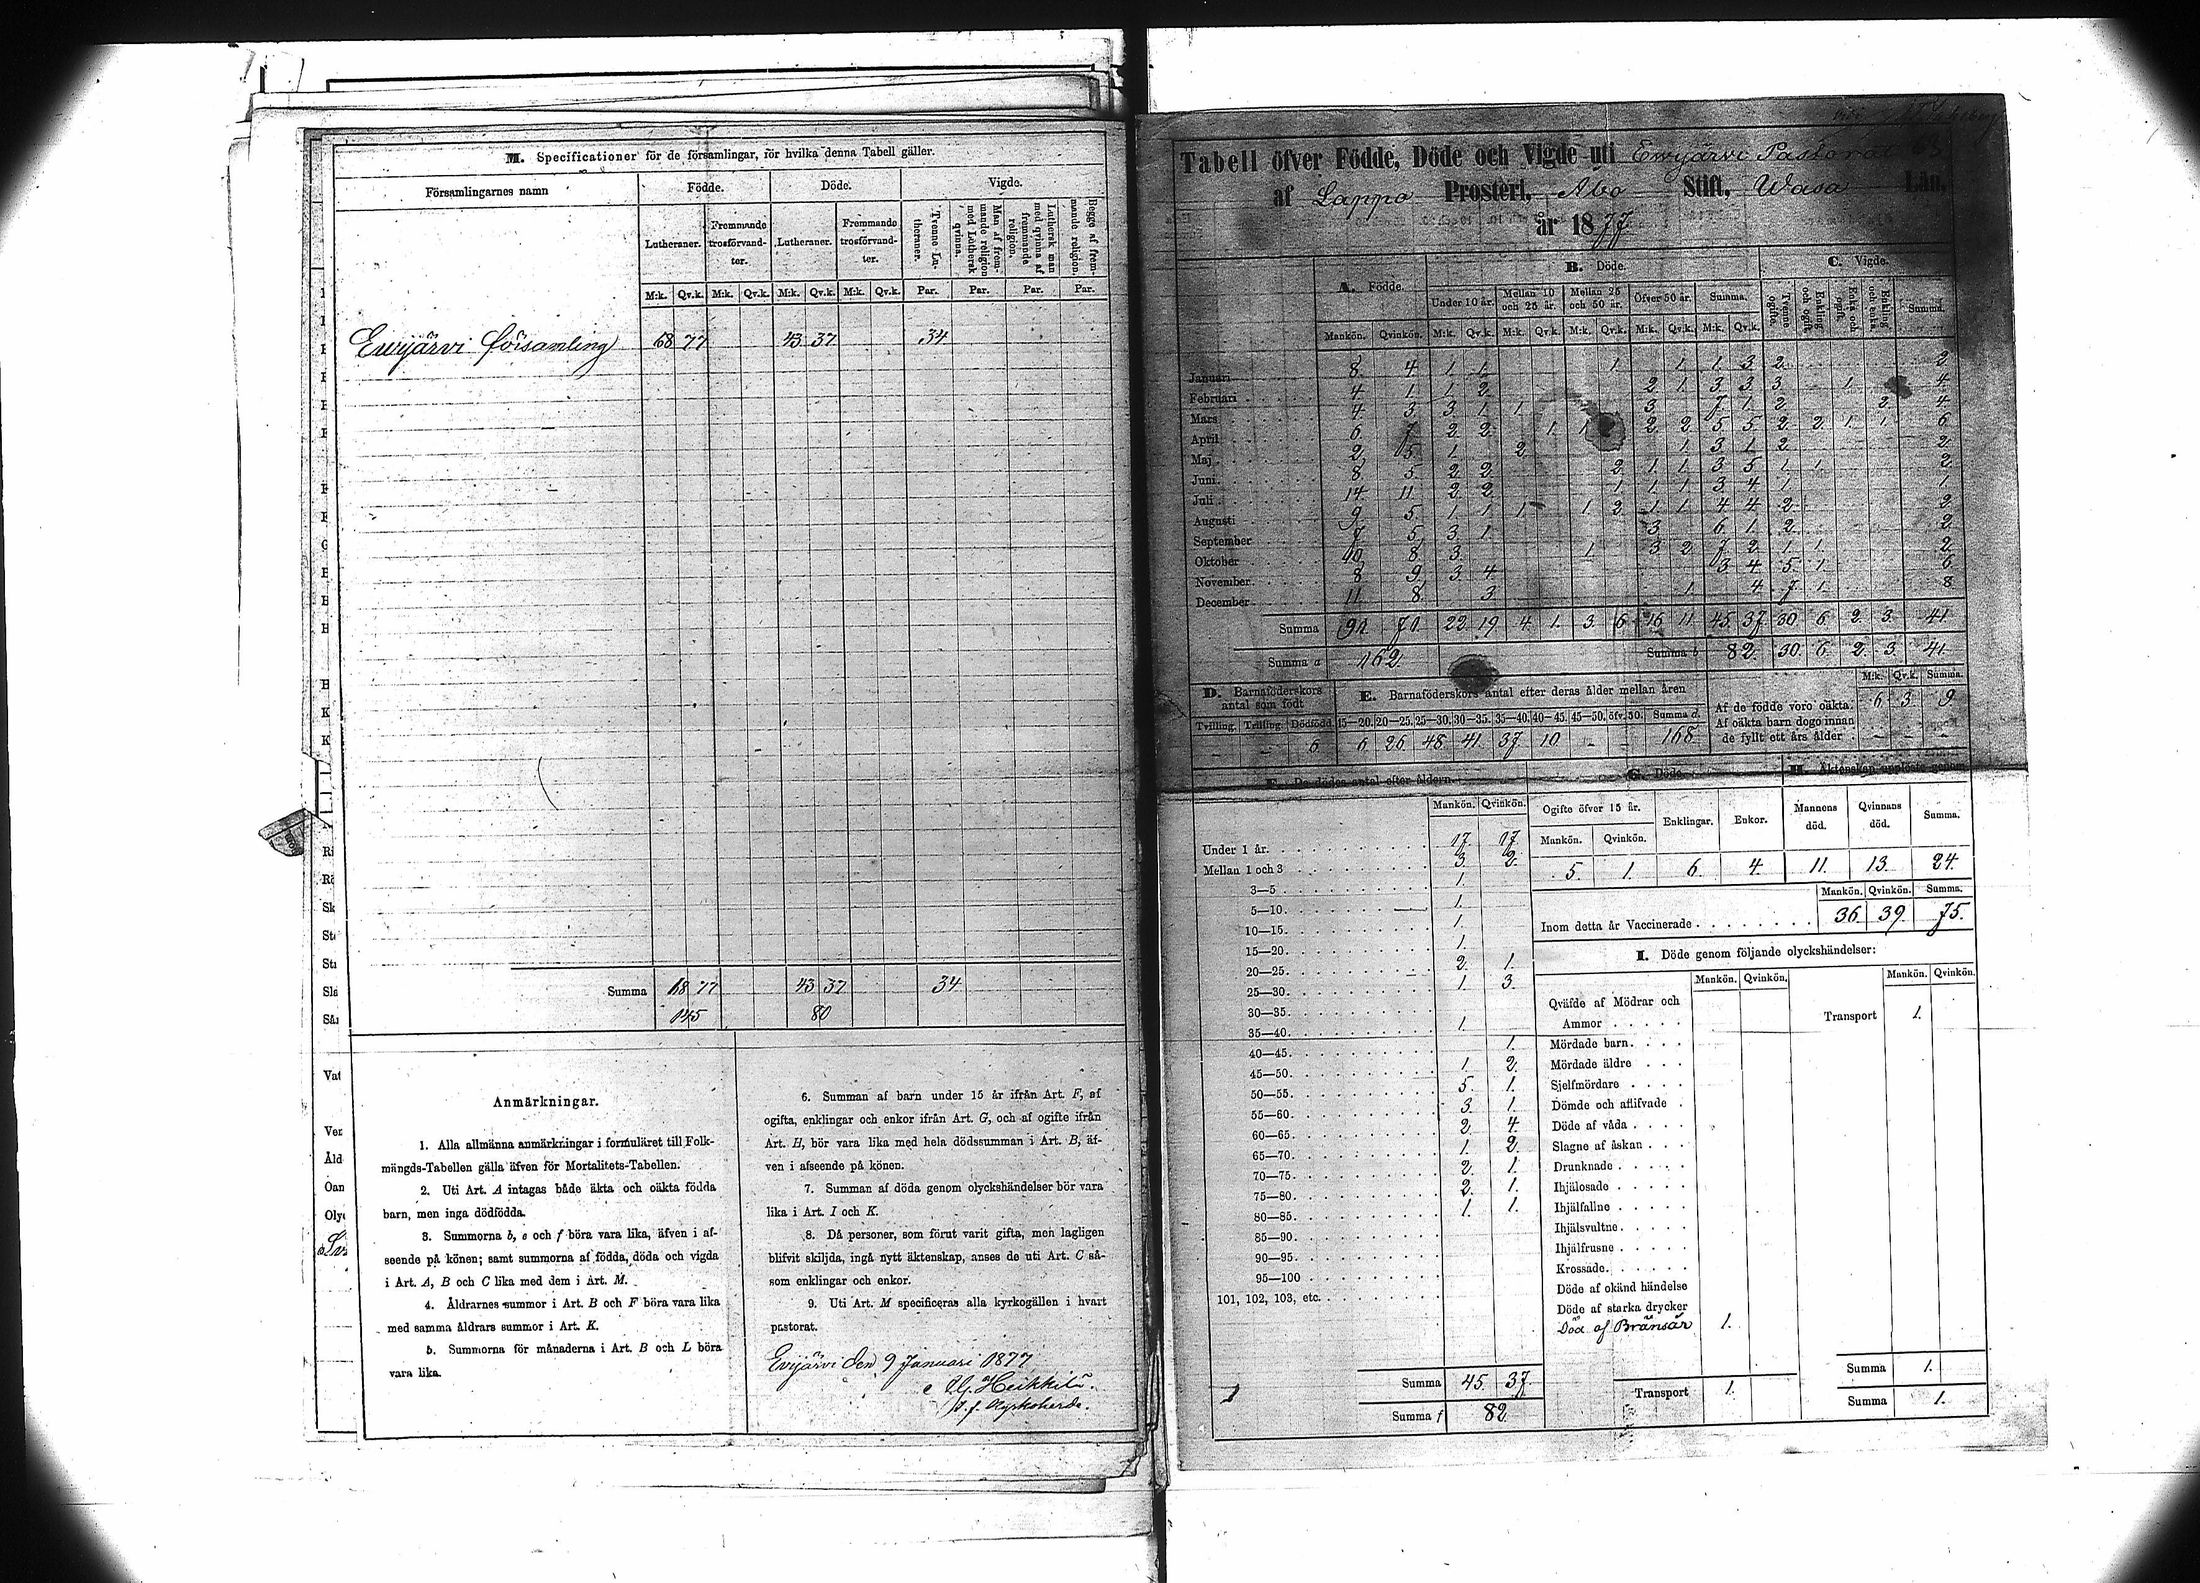 M. Specificationer för de församlingar, för hvilka denna Tabell gäller.
Församlingarnes namn Födde. Döde. Vigde.
Lutheraner. Fremmande trosförvandter. Lutheraner. Fremmande trosförvandter. Tvenne Lutheraner. Man af fremmande religion med Luthersk qvinna. Luthersk man med qvinna af fremmande religion. Begge af fremmande religion.
M:k. Qv.k. M:k. Qv.k. M:k. Qv.k. M:k. Qv.k. Par. Par. Par. Par.
Ewijärvi församling 68 77 43 37 34
Summa 68 77 43 37 34
145 80
Anmärkningar.
1. Alla allmänna anmärkningar i formuläret till Folk-
mängds-Tabellen gälla äfven för Mortalitets-Tabellen.
2. Uti Art. A intagas både äkta och oäkta födda
barn, men inga dödfödda.
3. Summorna b, e och f böra vara lika, äfven i af-
seende på könen; samt summorna af födda, döda och vigda
i Art. A, B och C lika med dem i Art. M.
4. Åldrarnes summor i Art. B och F böra vara lika
med samma åldrars summor i Art. K.
5. Summorna för månaderna i Art. B och L böra
vara lika.
6. Summan af barn under 15 år ifrån Art. F, af
ogifta, enklingar och enkor ifrån Art. G, och af ogifte ifrån
Art. H, bör vara lika med hela dödssumman i Art. B, äf-
ven i afseende på könen.
7. Summan af döda genom olyckshändelser bör vara
lika i Art. I och K.
8. Då personer, som förut varit gifta, men lagligen
blifvit skiljda, ingå nytt äktenskap, anses de uti Art. C så-
som enklingar och enkor.
9. Uti Art. M specificeras alla kyrkogällen i hvart
pastorat.
Evijärvi den 9 Januari 1877
J.G. Heikkilä.
v. f. Kyrkoherde.
Tabell öfver Födde, Döde och Vigde uti Ewijärvi Pastorat
af Lappo Prosteri, Åbo Stift, Wasa Län,
år 1877
A. Födde. B. Döde. C. Vigde.
Under 10 år. Mellan 10 och 25 år. Mellan 25 och 50 år. Öfver 50 år. Summa. Tvenne ogifte. Enkling och ogift. Enka och ogift. Enkling och enka. Summa.
Mankön. Qvinkön. M:k. Qv.k. M:k. Qv.k. M:k. Qv.k. M:k. Qv.k. M:k. Qv.k.
Januari 8. 4 1. 1. 1. 1. 1. 3 2. 2.
Februari 4 1. 1. 2. 2. 1. 3. 3. 3. 1. 4.
Mars 4 3 3. 1. 1. 3. 7. 1. 2. 2. 4.
April 6 7. 2. 2. 1. 1. 2. 2. 5 5 2. 2. 1. 1. 6
Maj 2. 5 1. 2. 1. 3. 1. 2. 2.
Juni 8. 5. 2. 2. 2. 1. 1. 3. 5. 1. 1. 2.
Juli 14 11. 2. 2. 1. 1. 1. 3. 4. 1. 1.
Augusti 9. 5. 1. 1. 1. 1. 2. 1. 1. 4 4 2. 2.
September 7. 5. 3. 1. 3. 6 1. 2. 2.
Oktober 10. 8. 3. 1. 3 2. 7. 2. 1. 1. 2.
November 8 9. 3. 4. 3. 4 5. 1. 6
December 11. 8. 3. 1. 4 7. 1. 8
Summa 91. 71. 22. 19. 4. 1. 3. 6 16 11. 45 37. 30 6. 2. 3. 41.
Summa a 162. Summa b 82. 30 6. 2. 3. 41.
D. Barnaföderskors antal som födt
Tvilling. Trilling. Dödfödd.
– – 6
E. Barnaföderskors antal efter deras ålder mellan åren
15—20. 20—25. 25—30. 30—35. 35—40. 40—45. 45—50. öfv. 50. Summa d.
6. 26. 48. 41. 37. 10. – – 168.
M:k. Qv.k. Summa.
Af de födde voro oäkta. 6 3 9
Af oäkta barn dogo innan
de fyllt ett års ålder – – –
F. De dödes antal efter åldern.
Mankön. Qvinkön.
Under 1 år. 17. 17.
Mellan 1 och 3 3. 2.
3—5 1.
5—10. 1.
10—15. 1.
15—20. 1.
20—25. 2. 1.
25—30. 1. 3.
30—35.
35—40. 1.
40—45. 1.
45—50. 1. 2.
50—55. 5. 1.
55—60. 3. 1.
60—65. 2. 4.
65—70. 1. 2.
70—75. 2. 1.
75—80. 2. 1.
80—85. 1. 1.
85—90.
90—95.
95—100
101, 102, 103, etc.
Summa 45. 37.
Summa f 82.
G. Döde.
Ogifte öfver 15 år. Enklingar. Enkor.
Mankön. Qvinkön.
5. 1. 6. 4.
H. Äktenskap upplöste genom
Mannens död. Qvinnans död. Summa.
11. 13. 24.
Mankön. Qvinkön. Summa.
Inom detta år Vaccinerade 36. 39. 75.
I. Döde genom följande olyckshändelser:
Mankön. Qvinkön. Mankön. Qvinkön.
Qväfde af Mödrar och
Ammor
Transport 1.
Mördade barn.
Mördade äldre
Sjelfmördare
Dömde och aflifvade
Döde af våda
Slagne af åskan
Drunknade
Ihjälosade
Ihjälfallne
Ihjälsvultne.
Ihjälfrusne
Krossade.
Döde af okänd händelse
Döde af starka drycker
Död af Brånsår 1.
Summa 1.
Transport 1.
Summa 1.